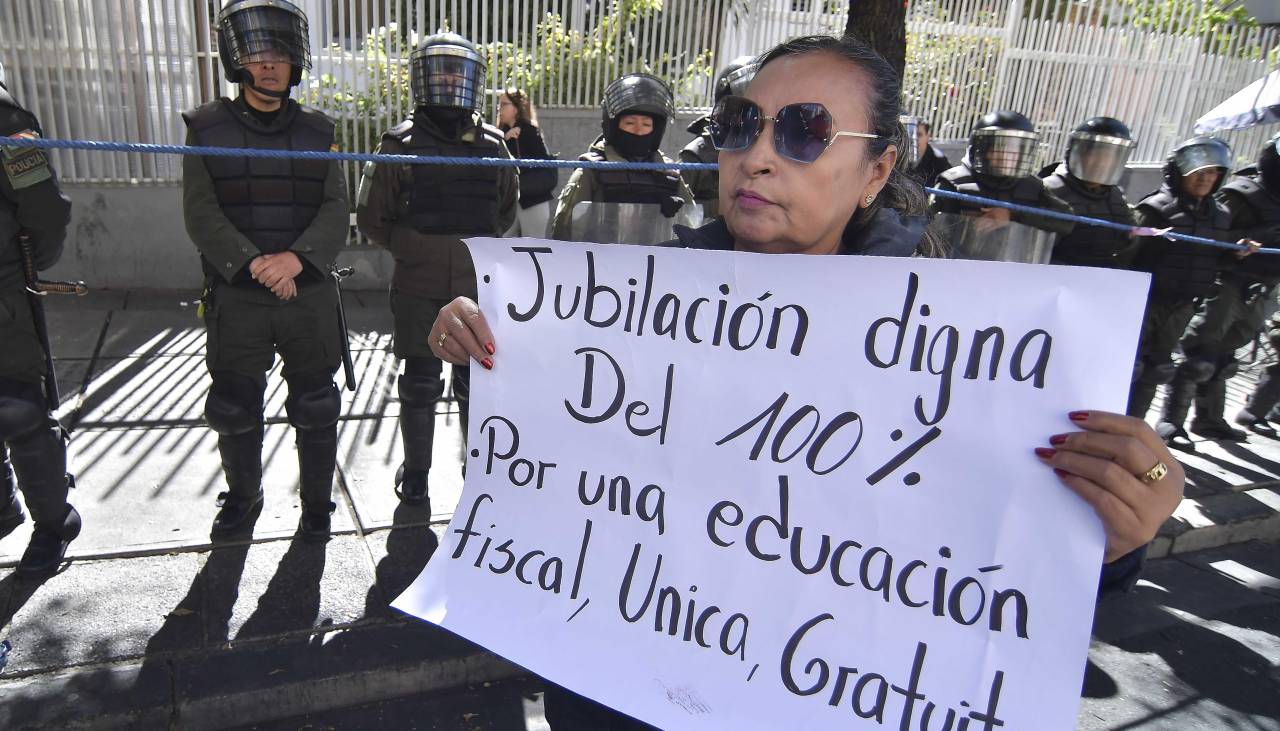 POLICIA
· Jubilación digna
Del 100%
· Por una educación
fiscal, Unica, Gratuit